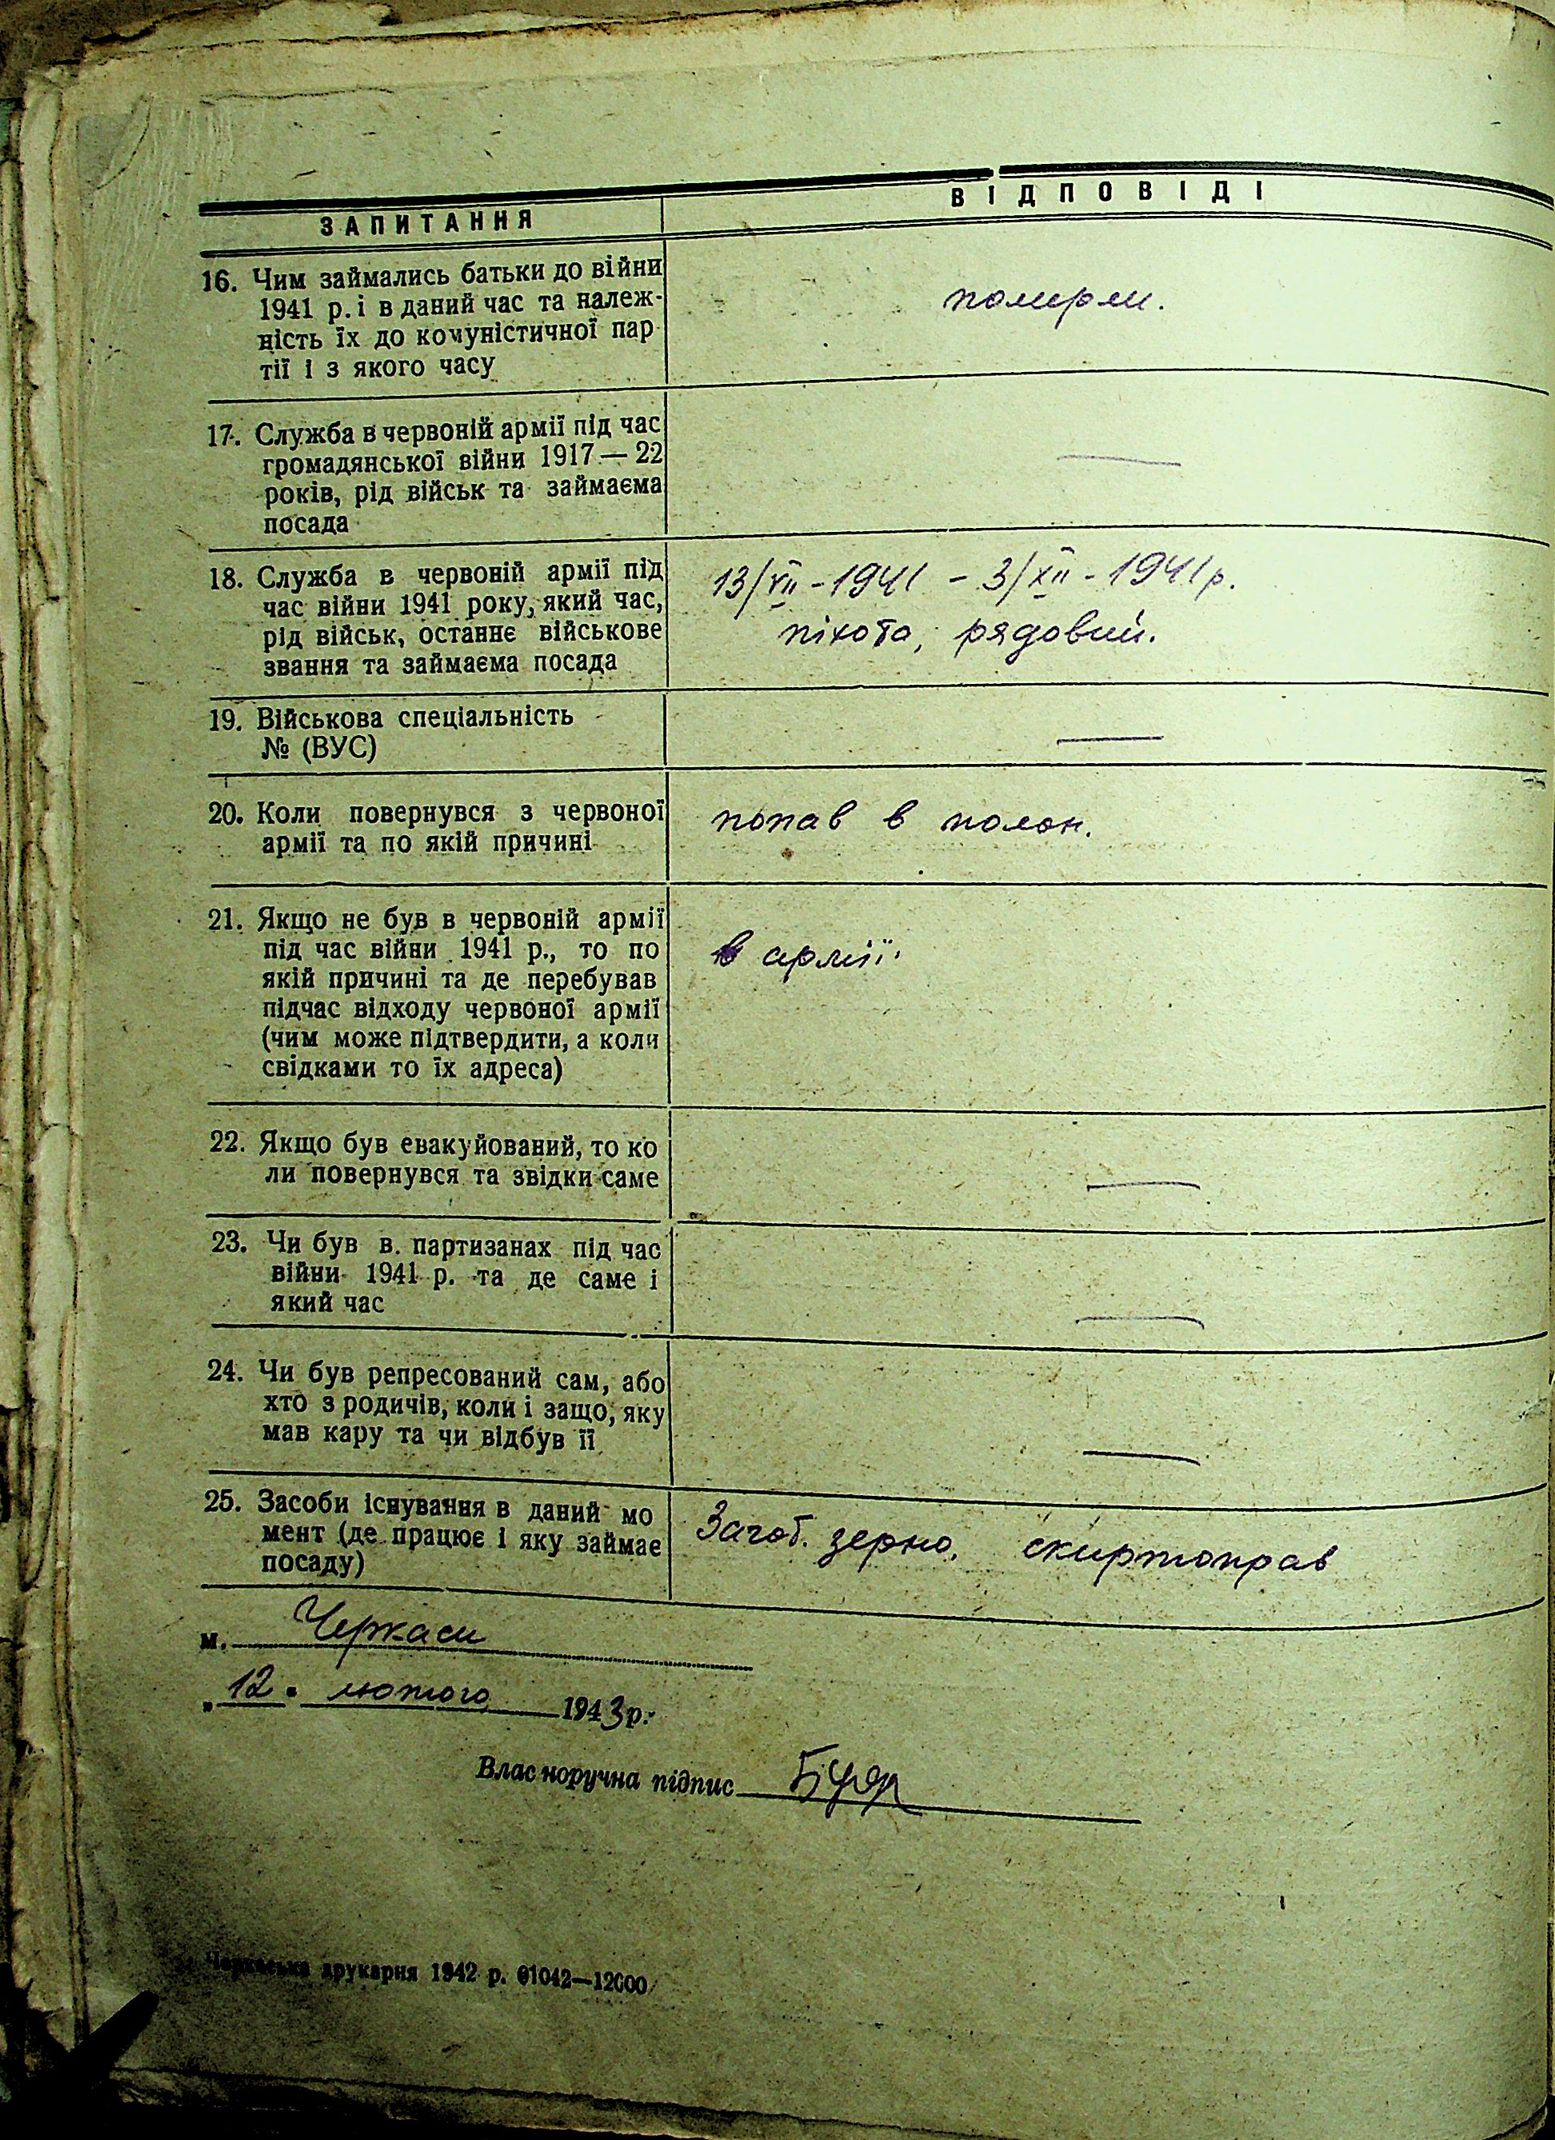 ЗАПИТАННЯ
ВІДПОВІДІ
16. Чим займались батьки до війни
1941 р. і в даний час та належ-
ність їх до комуністичної пар
тії і з якого часу
помирли.
17. Служба в червоній армії під час
громадянської війни 1917—22
років, рід військ та займаєма
посада
—
18. Служба в червоній армії під
час війни 1941 року, який час,
рід військ, останнє військове
звання та займаєма посада
13/VII - 1941 - 3/XII - 1941 р.
піхота, рядовий.
19. Військова спеціальність
№ (ВУС)
—
20. Коли повернувся з червоної
армії та по якій причині
попав в полон.
21. Якщо не був в червоній армії
під час війни 1941 р., то по
якій причині та де перебував
підчас відходу червоної армії
(чим може підтвердити, а коли
свідками то їх адреса)
в армії.
22. Якщо був евакуйований, то ко
ли повернувся та звідки саме
—
23. Чи був в. партизанах під час
війни 1941 р. та де саме і
який час
—
24. Чи був репресований сам, або
хто з родичів, коли і защо, яку
мав кару та чи відбув її
—
25. Засоби існування в даний мо
мент (де працює і яку займає
посаду)
Загот. зерно. скиртоправ
м. Черкаси
„12" лютого 1943 р.
Власноручна підпис
Черкаська друкарня 1942 р. 01042—12000